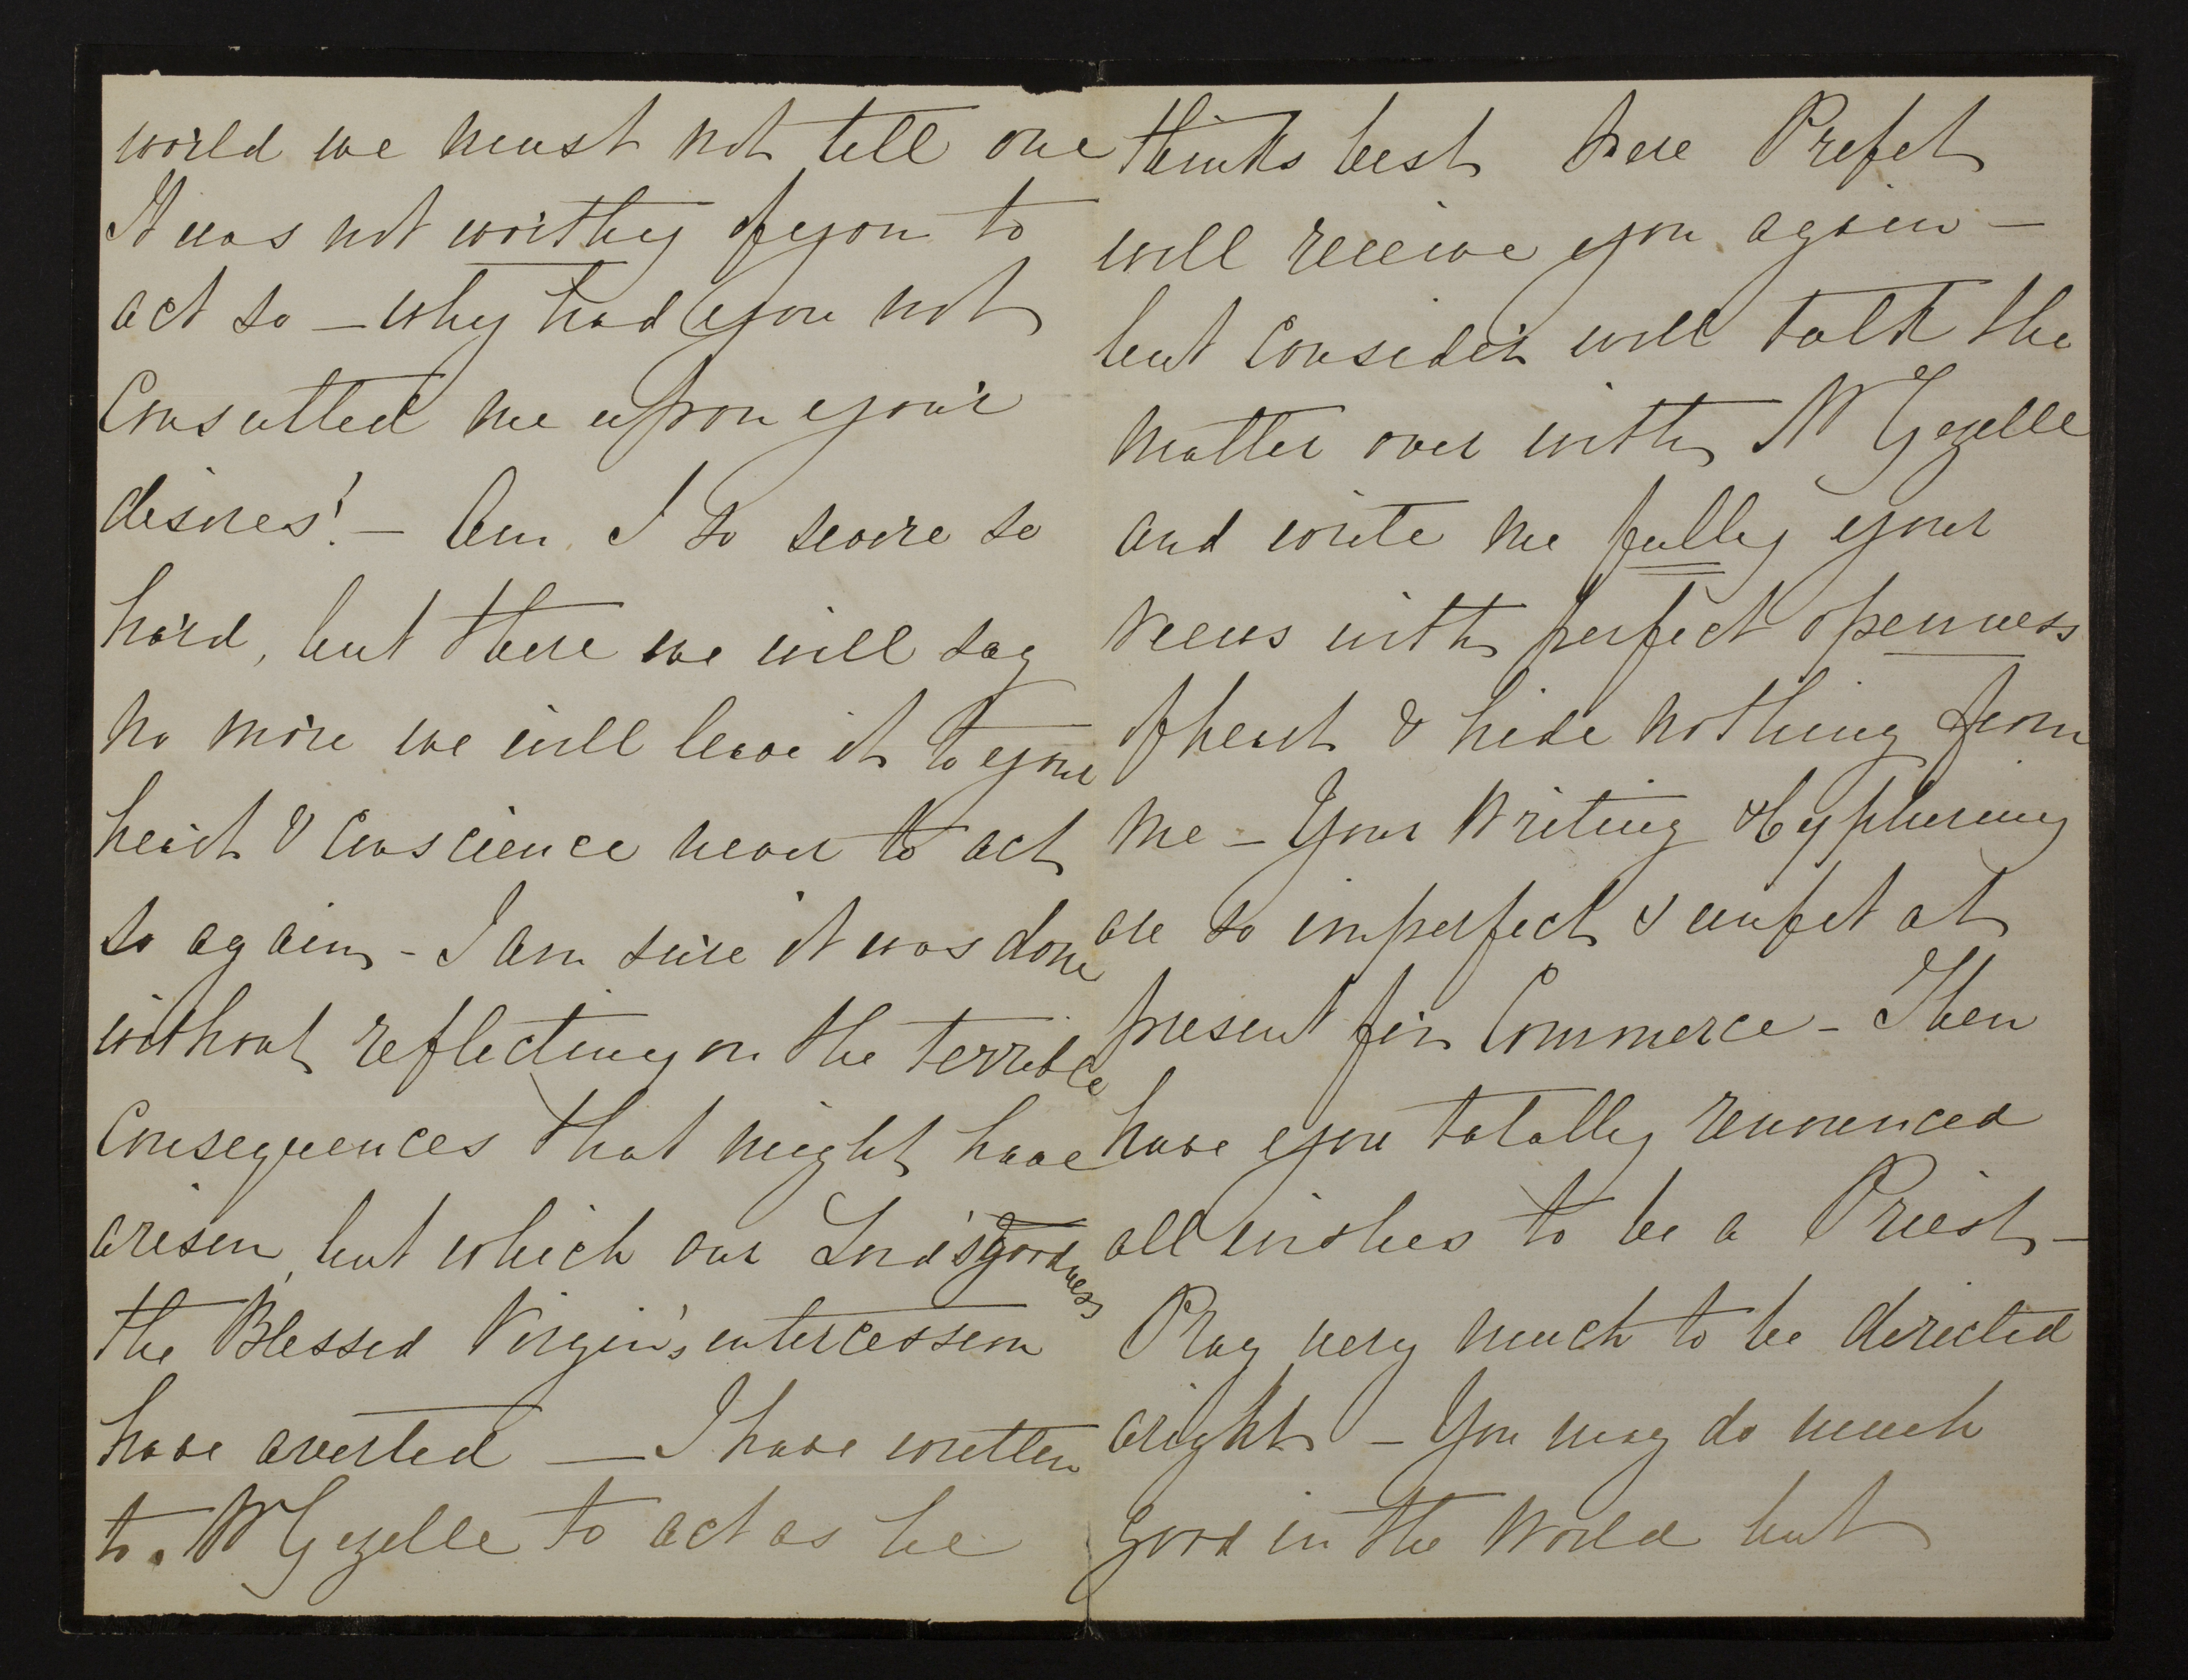 world we must not tell one
It was not worthy of you to
act so – why had you not
Consulted me upon your
desires! – Am I so severe so
hard, but there we will say
no more we will leave it to your
heart & conscience never to act
so again – I am sure it was done
without reflecting on the terrible
Consequences that might have
arisen, but which our Lord's goodness
the Blessed Virgin's intercession
have averted — I have written
to Mr Gezelle to act as he
thinks best. Prefet
will receive you again –
but Consider well talk the
matter over with Mr Gezelle
and write me fully your
views with perfect openness
of heart & hide nothing from
me – Your Writing & Cyphering
are so imperfect & unfit at
present for Commerce – Then
have you totally renounced
all wishes to be a Priest –
Pray very much to be directed
aright – You may do much
good in the World but